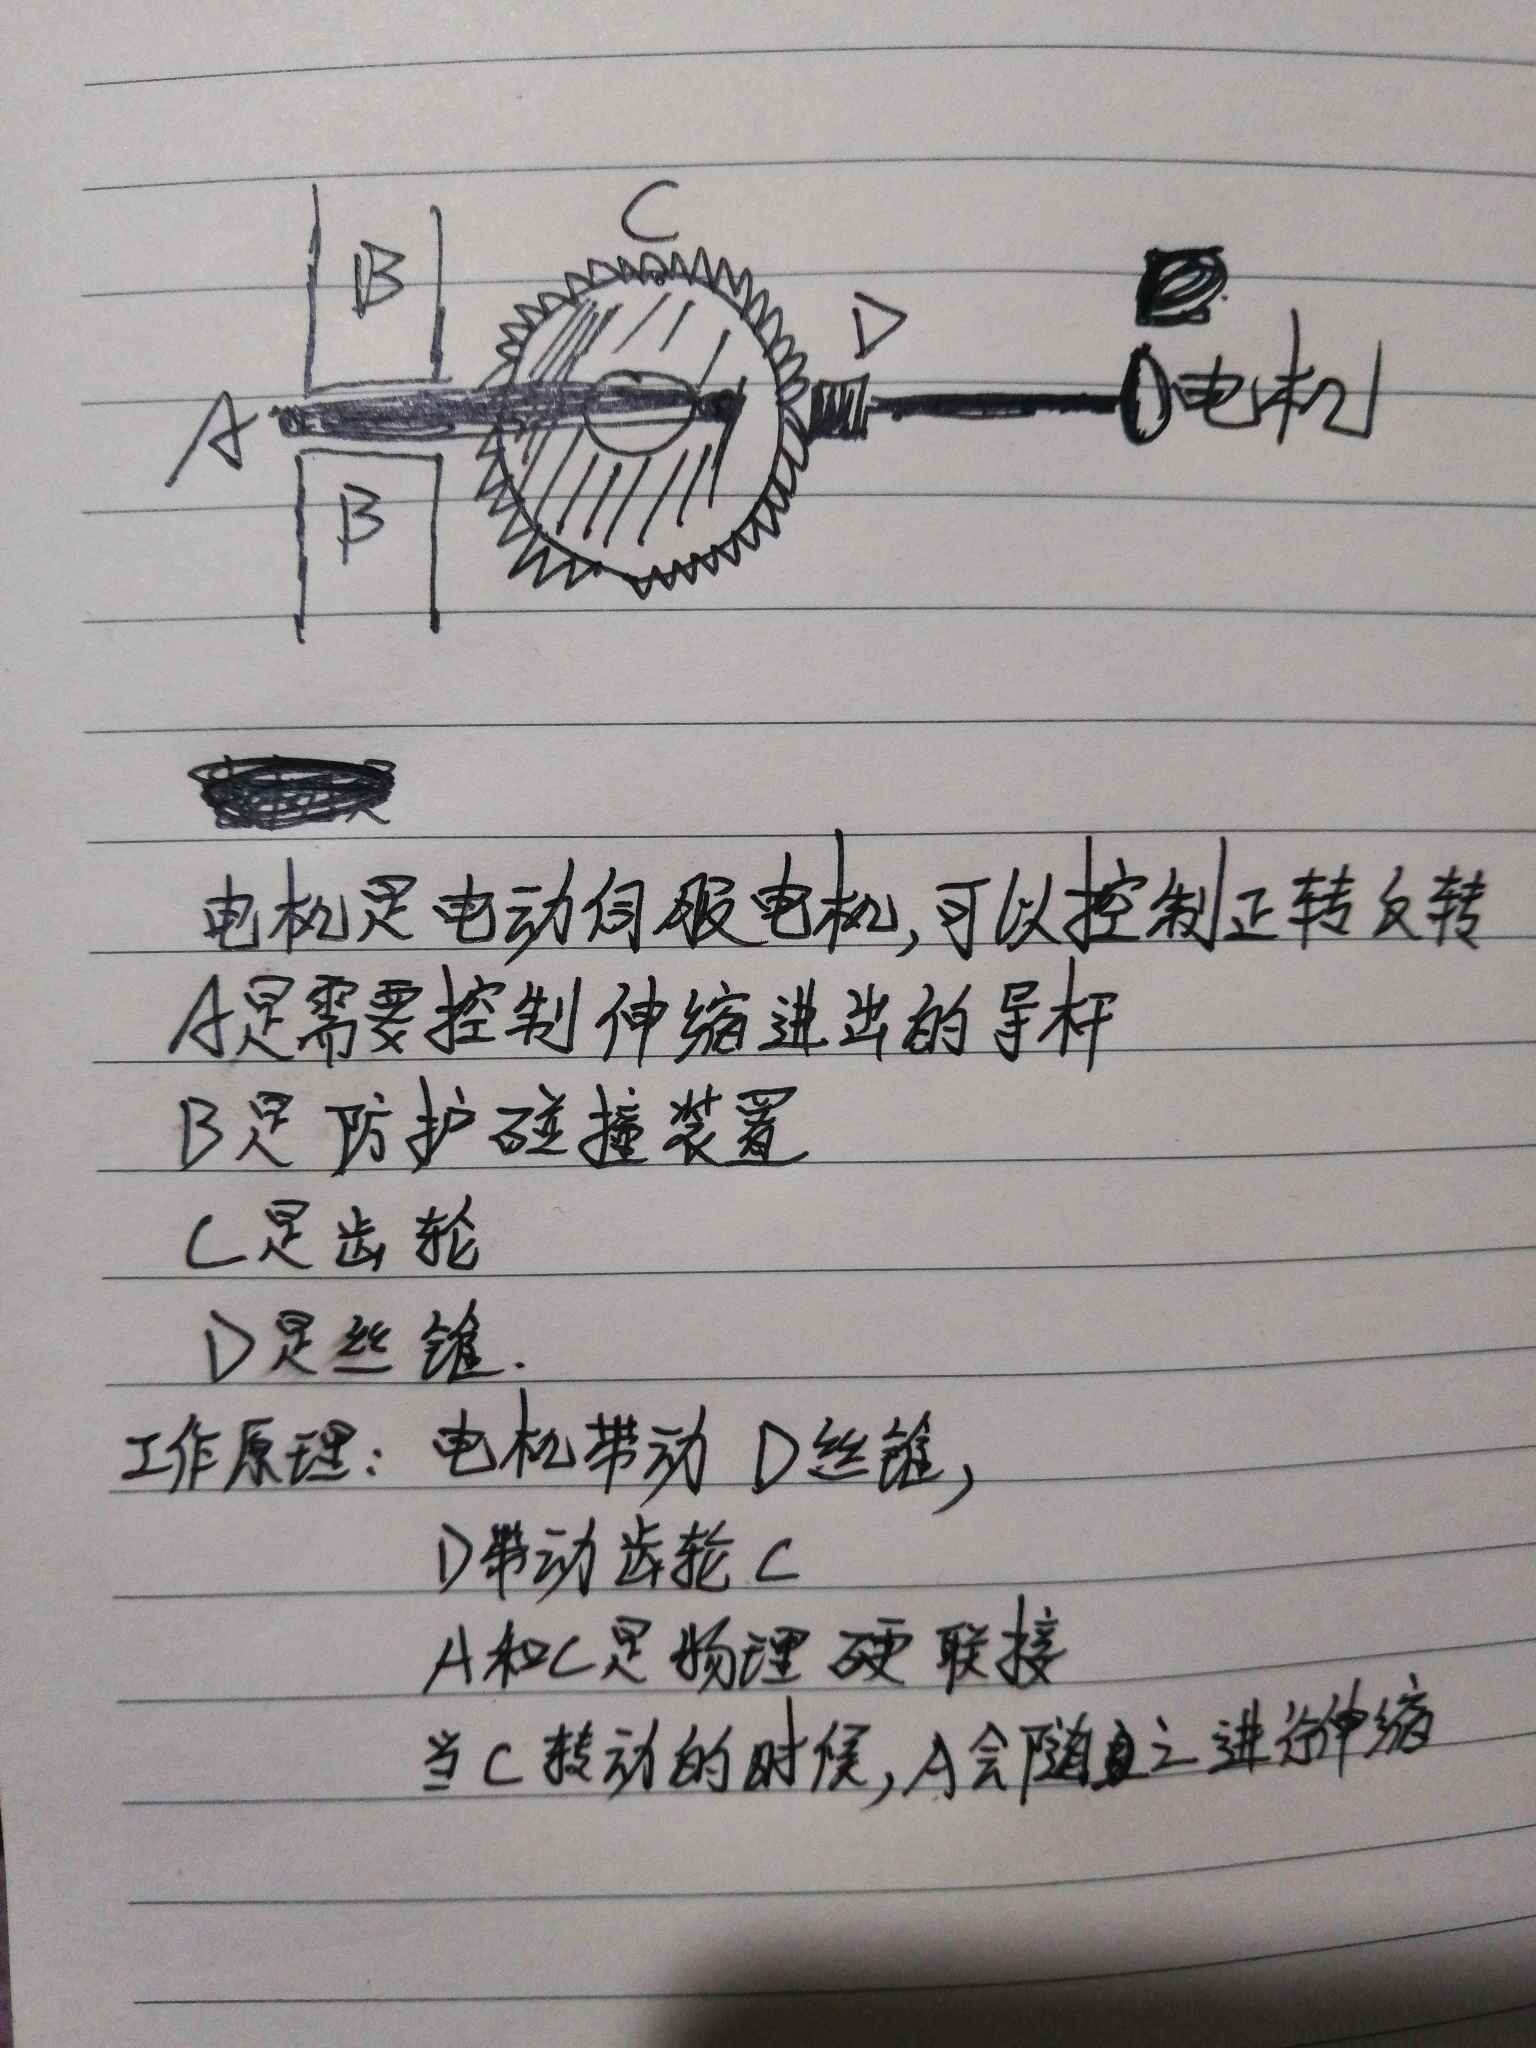 C
B
D
A
电机
B
电机是电动伺服电机,可以控制正转反转
A是需要控制伸缩进出的导杆
B是防护碰撞装置
C是齿轮
D是丝锥.
工作原理: 电机带动D丝锥,
D带动齿轮C
A和C是物理硬联接
当C转动的时候,A会随之进行伸缩